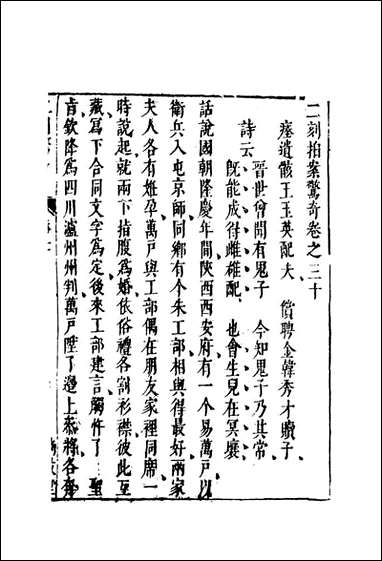 二刻拍案驚奇卷之三十
瘞遺骸王玉英配夫　償聘金韓秀才贖子
詩云
晋世曾聞有鬼子　今知鬼子乃其常
旣能成得雌雄配　也會生兒在冥壤
話說國朝隆慶年間陝西西安府有一个易萬戶以
衛兵入屯京師同鄉有个朱工部相與得最好兩家
夫人各有姙孕萬戶與工部偶在朋友家裡同席一
時說起就兩下指腹爲婚依俗禮各割衫襟彼此互
藏寫下合同文字爲定後來工部建言觸忤了聖
肯欽降爲四川瀘州州判萬戶陞了邊上叅將各奔